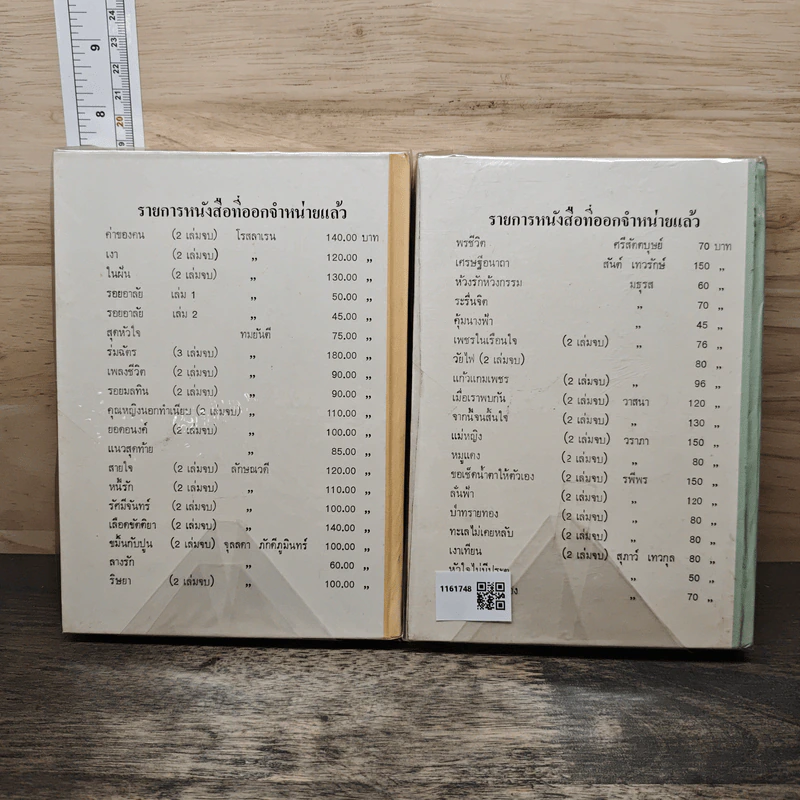 9
8
24
23
22
21
20
19
รายการหนังสือที่ออกจำหน่ายแล้ว
ค่าของคน (2 เล่มจบ) โรสลาเรน 140.00 บาท
เงา (2 เล่มจบ) ,, 120.00 ,,
ในฝัน (2 เล่มจบ) ,, 130.00 ,,
รอยอาลัย เล่ม 1 ,, 50.00 ,,
รอยอาลัย เล่ม 2 ,, 45.00 ,,
สุดหัวใจ ทมยันตี 75.00 ,,
ร่มฉัตร (3 เล่มจบ) ,, 180.00 ,,
เพลงชีวิต (2 เล่มจบ) ,, 90.00 ,,
รอยมลทิน (2 เล่มจบ) ,, 90.00 ,,
คุณหญิงนอกทำเนียบ (2 เล่มจบ) ,, 110.00 ,,
ยอดอนงค์ (2 เล่มจบ) ,, 100.00 ,,
แนวสุดท้าย ,, 85.00 ,,
สายใจ (2 เล่มจบ) ลักษณวดี 120.00 ,,
หนี้รัก (2 เล่มจบ) ,, 110.00 ,,
รัศมีจันทร์ (2 เล่มจบ) ,, 100.00 ,,
เลือดขัตติยา (2 เล่มจบ) ,, 140.00 ,,
ขมิ้นกับปูน (2 เล่มจบ) จุลลดา ภักดีภูมินทร์ 100.00 ,,
ลางรัก ,, 60.00 ,,
ริษยา (2 เล่มจบ) ,, 100.00 ,,
รายการหนังสือที่ออกจำหน่ายแล้ว
พรชีวิต ศรีสัตตบุษย์ 70 บาท
เศรษฐีอนาถา สันต์ เทวรักษ์ 150 ,,
ห้วงรักห้วงกรรม มธุรส 60 ,,
ระรื่นจิต ,, 70 ,,
คุ้มนางฟ้า ,, 45 ,,
เพชรในเรือนใจ (2 เล่มจบ) ,, 76 ,,
วัยไฟ (2 เล่มจบ) 80 ,,
แก้วแกมเพชร (2 เล่มจบ) ,, 96 ,,
เมื่อเราพบกัน (2 เล่มจบ) วาสนา 120 ,,
จากนี้จนสิ้นใจ (2 เล่มจบ) ,, 130 ,,
แม่หญิง (2 เล่มจบ) วราภา 150 ,,
หมูแดง (2 เล่มจบ) ,, 80 ,,
ขอเช็ดน้ำตาให้ตัวเอง (2 เล่มจบ) รพีพร 150 ,,
ลั่นฟ้า (2 เล่มจบ) ,, 120 ,,
ป่าทรายทอง (2 เล่มจบ) ,, 80 ,,
ทะเลไม่เคยหลับ (2 เล่มจบ) ,, 80 ,,
เงาเทียน (2 เล่มจบ) สุภาว์ เทวกุล 80 ,,
หัวใจไม่มีประตู ,, 50 ,,
,, 70 ,,
1161748